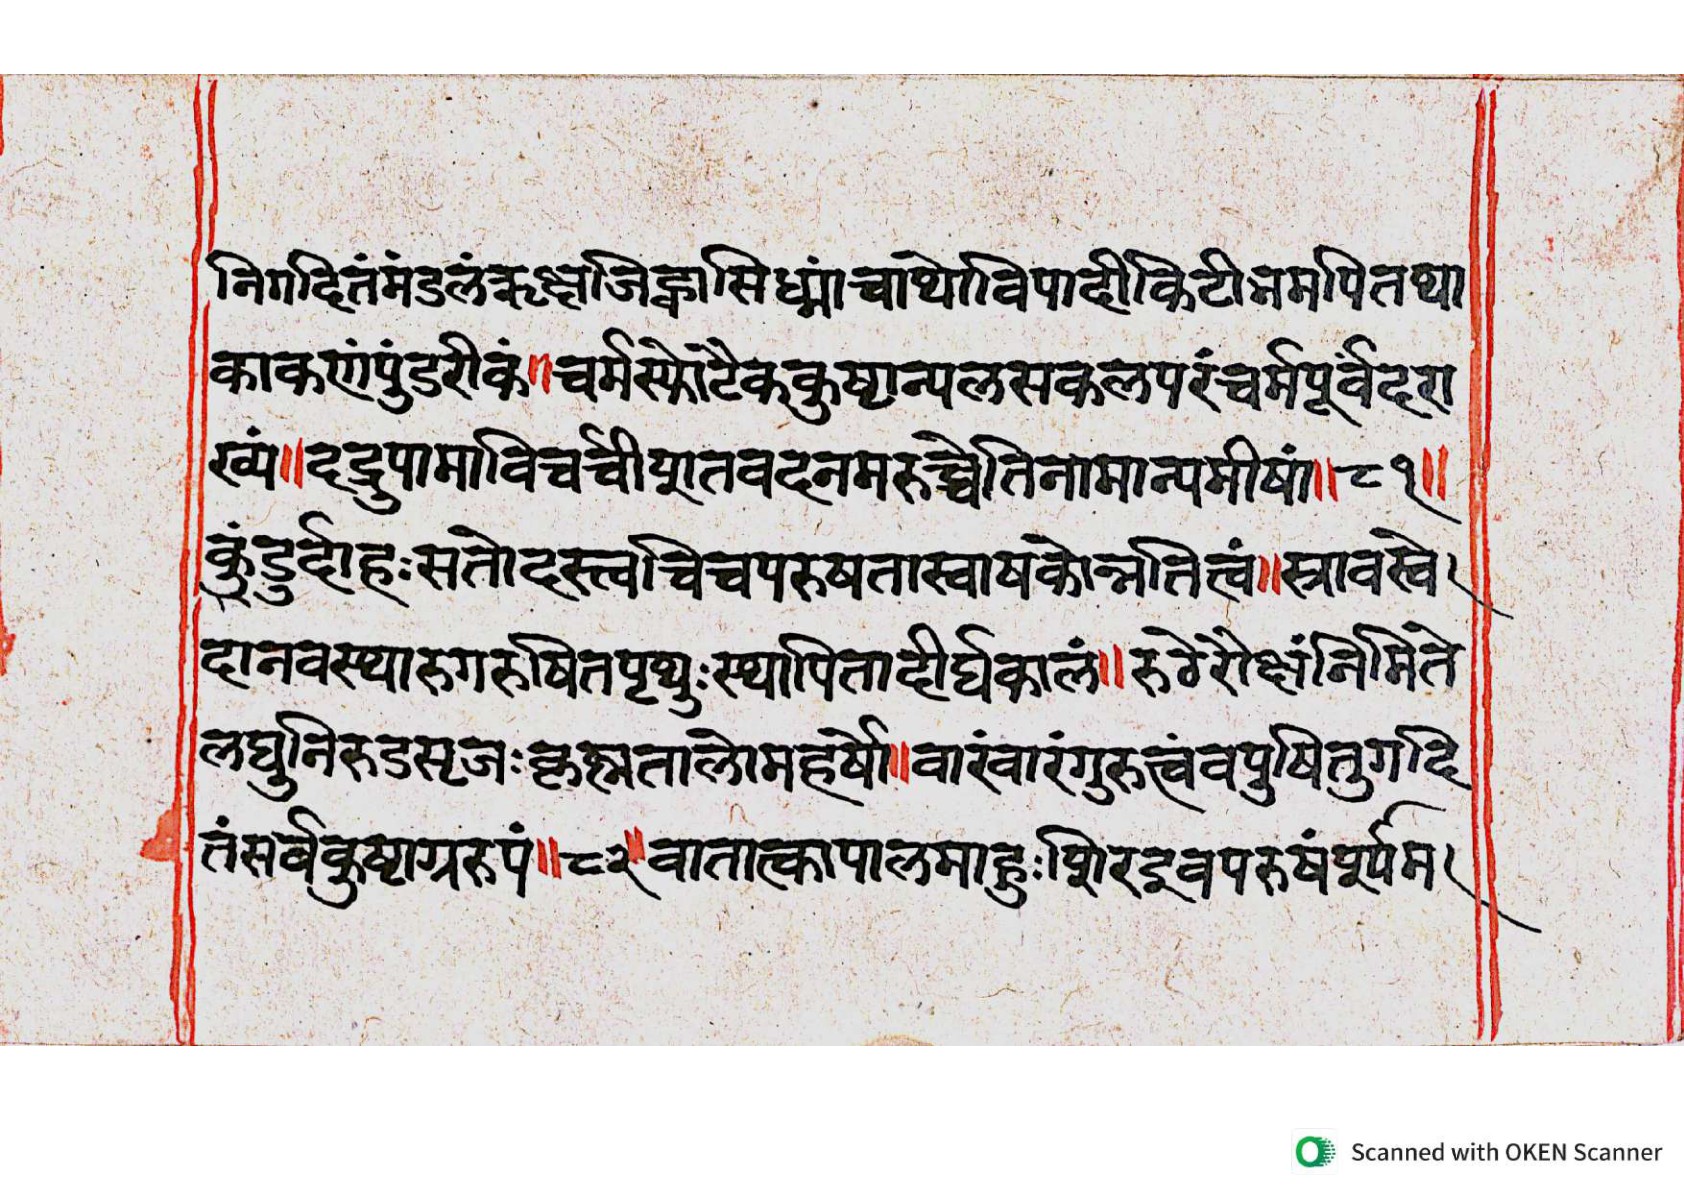 निगदितंमंडलंऋक्षजिह्वासिध्मांचाथोविपादीकिटीभमपितथा
काकणंपुंडरीकं॥चर्मस्फोटैककुष्टान्यलसकलपरंचर्मपूर्वंदरा
ख्यं॥दद्रुपामाविचर्चीशतवदनमरुच्चेतिनामान्यमीषां॥८१॥
कुंडुर्दाहःसतोदस्त्वचिचपरुषतास्वाषकोन्नतित्वं॥स्त्रावस्वे
दानवस्थारुगरुषितपृथुःस्थापितादीर्घकालं॥रुठेरौक्ष्यंनिमिते
लघुनिरुडसृजःकृह्मतालोमहर्षो॥वारंवारंगुरुत्वंवपुषितुगदि
तंसर्वकुष्टाग्ररुपं॥८२॥वातात्कापालमाहुःशिरइवपरुषंपूर्यम
Scanned with OKEN Scanner